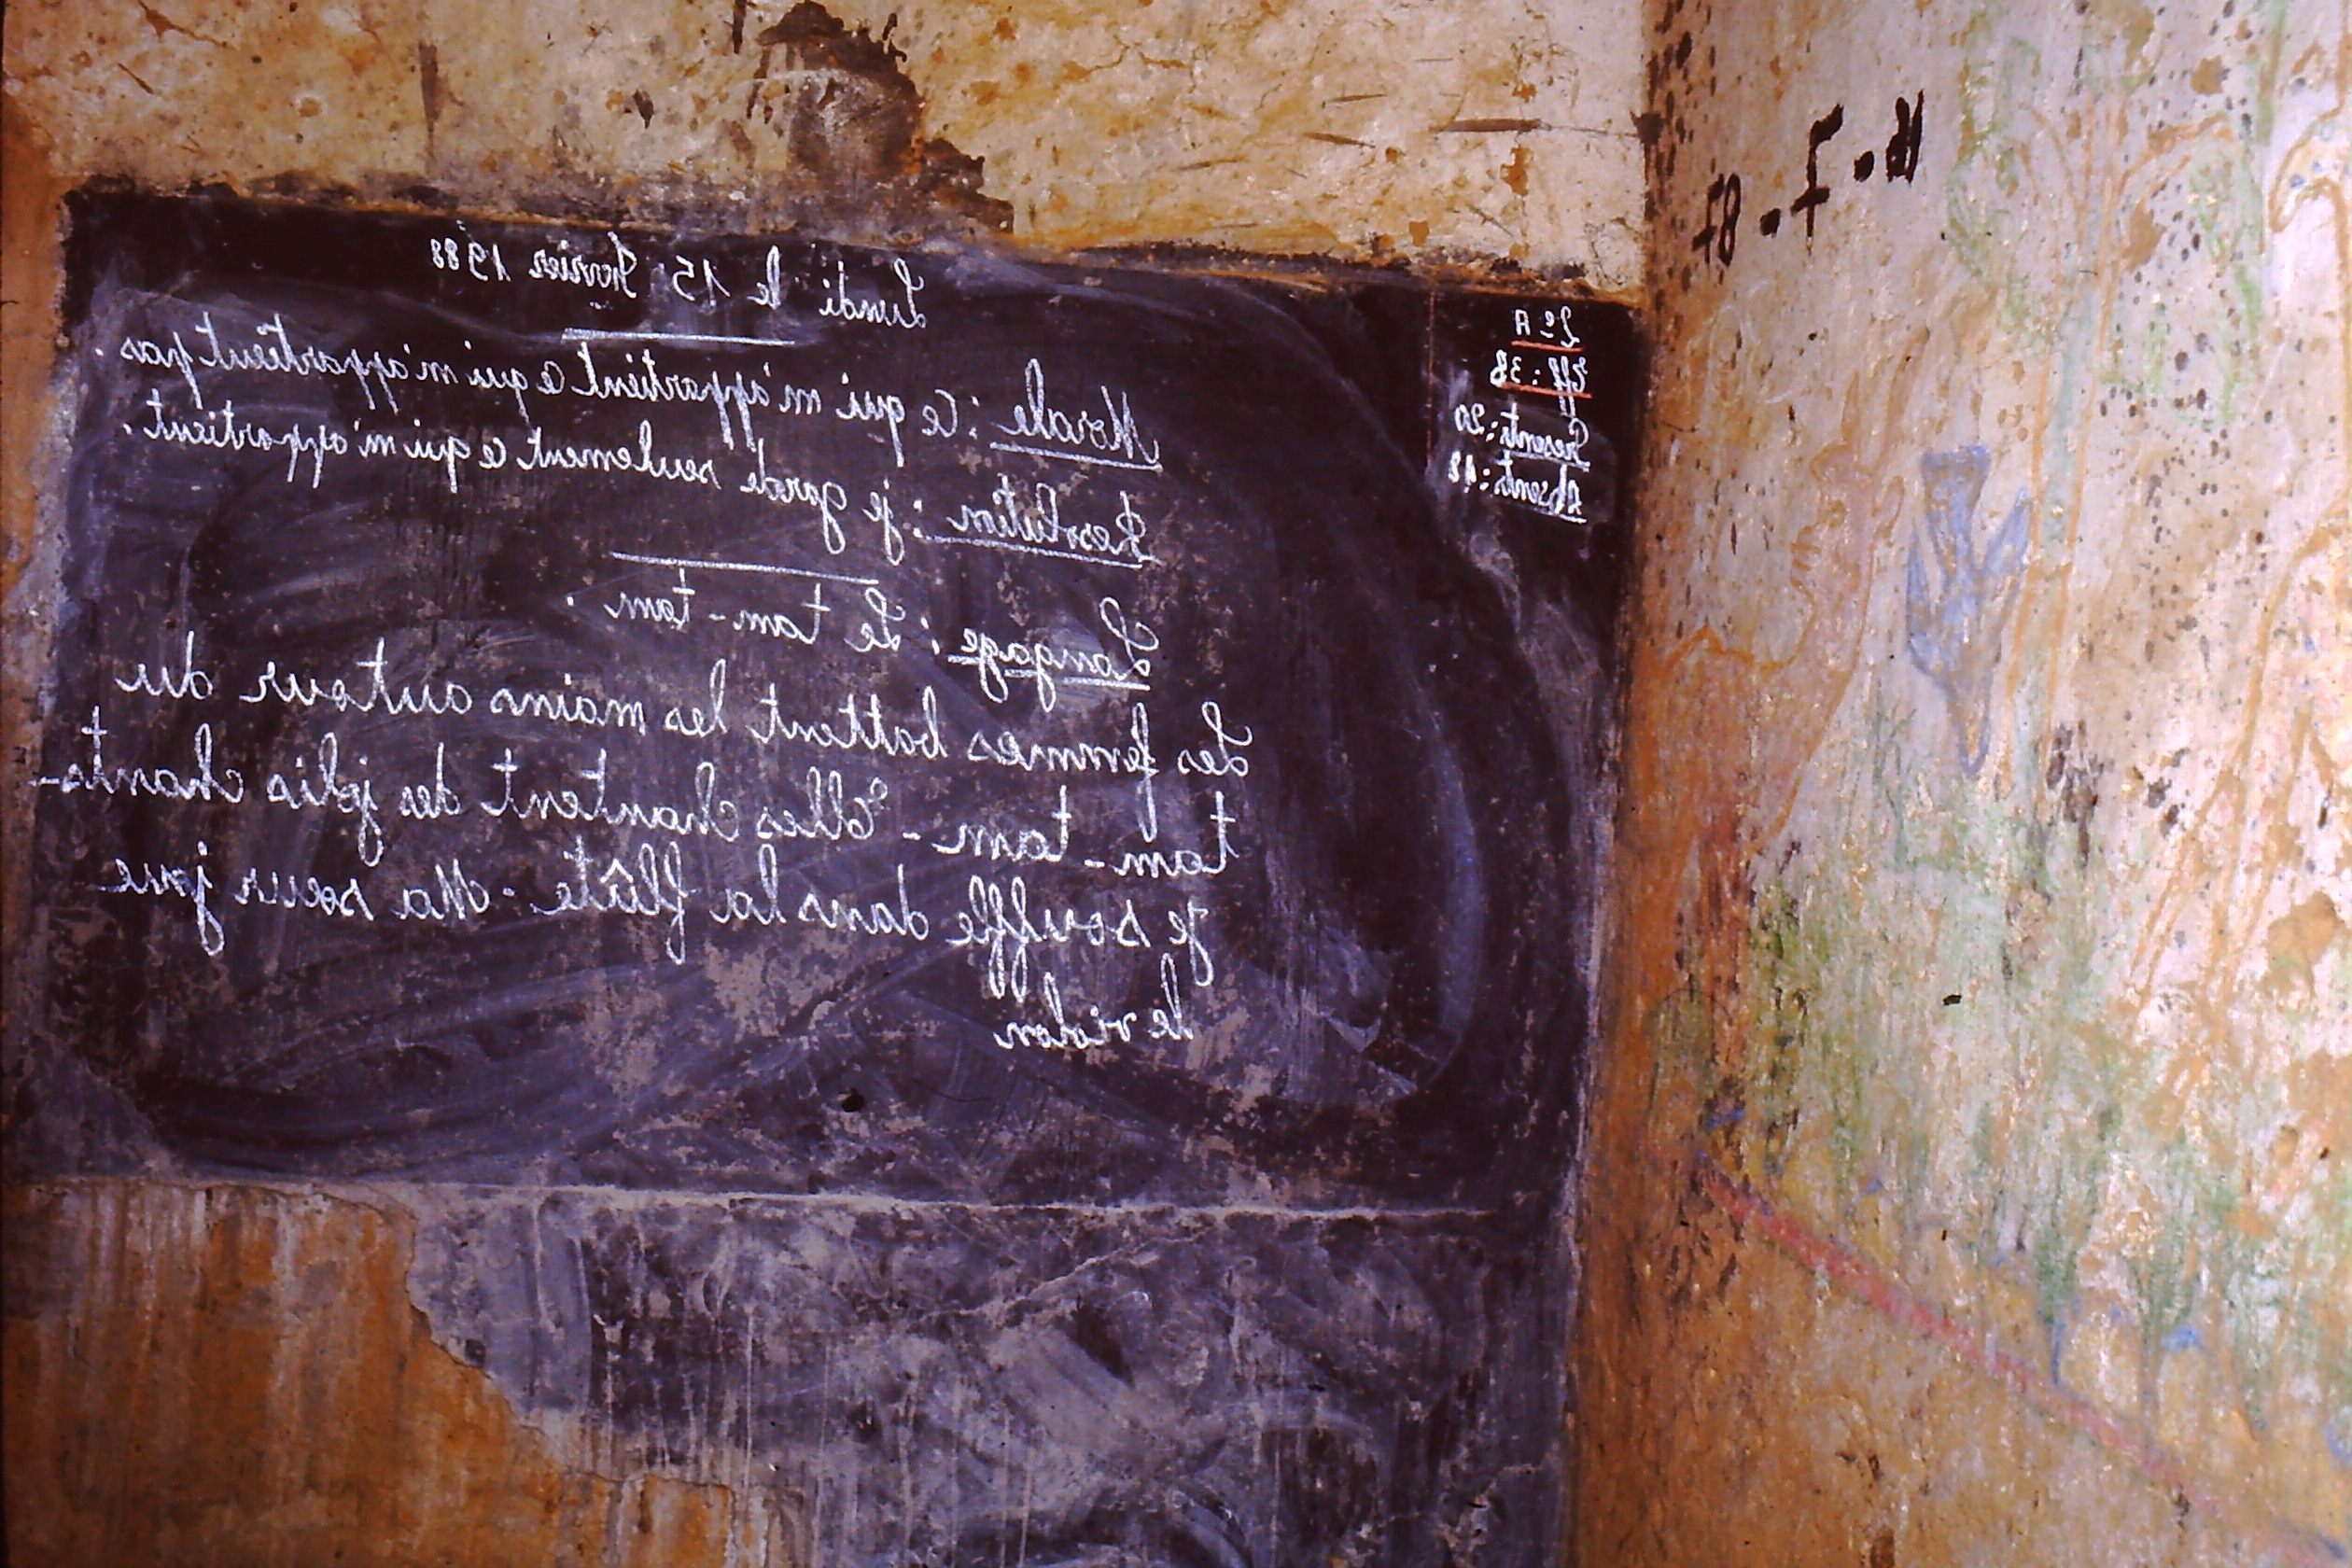 2e A
Eff : 38
Présents : 20
Absents : 18
Lundi le 15 Février 1988
Morale : Ce qui m'appartient ce qui m'appartient pas.
Résolution : je garde seulement ce qui m'appartient.
Langage : Le tam-tam.
Les femmes battent les mains autour du
tam-tam - Elles chantent des jolis chants-
Je souffle dans la flûte - Ma sœur joue
le violon
16 - 7 - 87